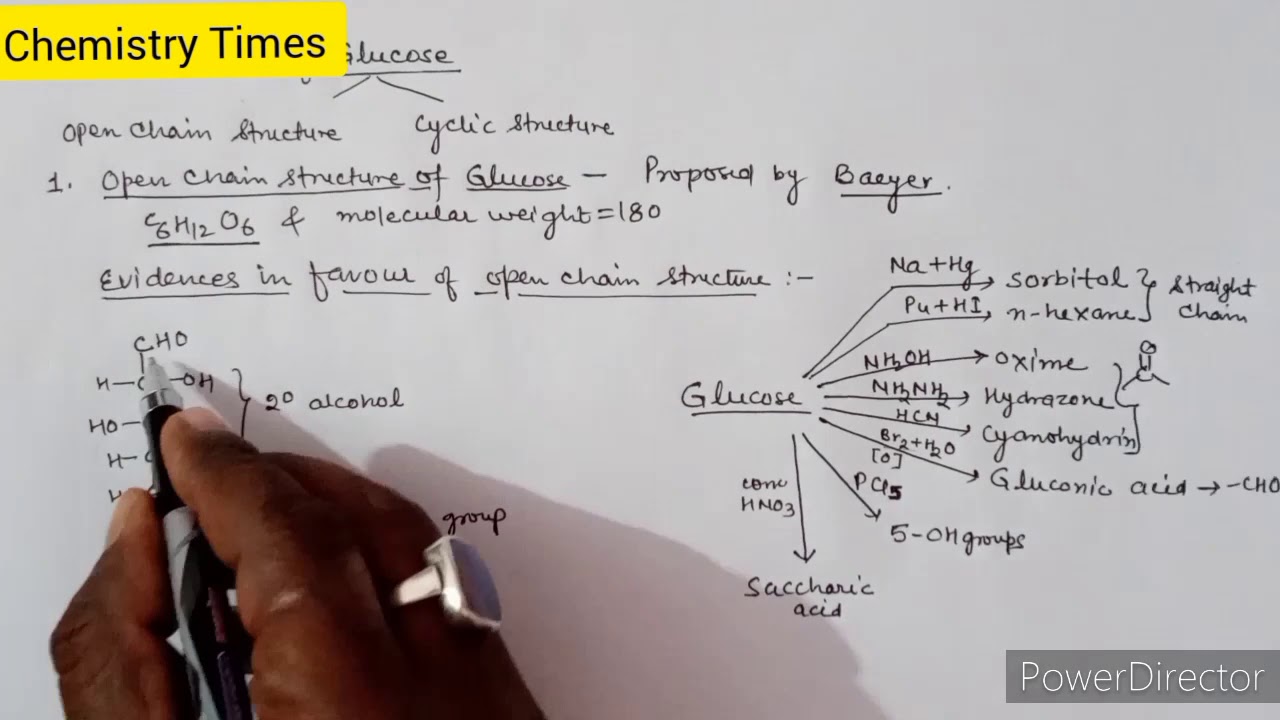 Chemistry Times
Glucose
Open chain structure
Cyclic structure
1. Open chain structure of Glucose - Proposed by Baeyer.
C6H12O6 & molecular weight = 180
Evidences in favour of open chain structure :-
CHO
H-C-OH
HO-
H-C
H-
2° alcohol
group
Glucose
Na+Hg → Sorbitol
P4+HI → n-hexane
Straight chain
NH2OH → Oxime
NH2NH2 → Hydrazone
HCN → Cyanohydrin
O
C
Br2+H2O
[O] → Gluconic acid → -CHO
PCl5
5-OH groups
conc
HNO3
Saccharic
acid
PowerDirector